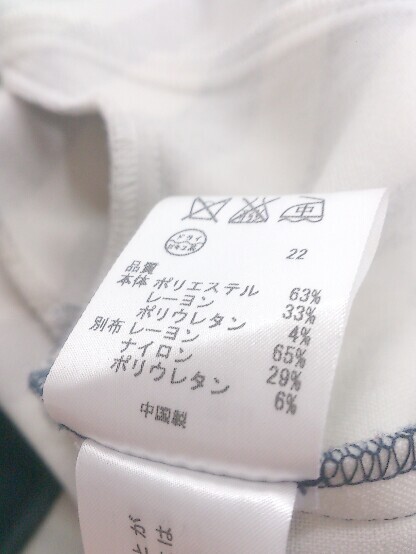 中
ドライ
セキユ系
22
品質
本体 ポリエステル 63%
レーヨン 33%
ポリウレタン 4%
別布 レーヨン 65%
ナイロン 29%
ポリウレタン 6%
中国製
とが
は